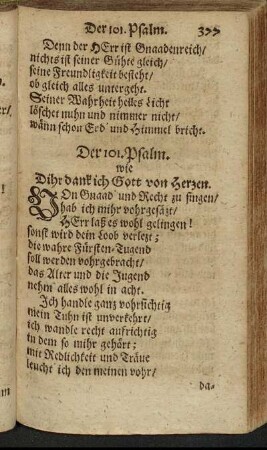 Der 101. Psalm. 377
Denn der HErr ist Gnaadenreich/
nichts ist seiner Gühte gleich/
seine Freundligkeit besteht/
ob gleich alles untergeht.
Seiner Wahrheit helles Licht
löschet nuhn und nimmer nicht/
wänn schon Erd' und Himmel bricht.
Der 101. Psalm.
wie
Dihr dank ich Gott von Herzen.
VOn Gnaad' und Recht zu singen/
hab ich mihr vohrgesäzt/
HErr laß es wohl gelingen!
sonst wird dein Loob verlezt;
die wahre Fürsten-Tugend
soll werden vohrgebracht/
das Alter und die Jugend
nehm' alles wohl in acht.
Ich handle ganz vohrsichtig
mein Tuhn ist unverkehrt/
ich wandle recht aufrichtig
in dem so mihr gehärt;
mit Redlichkeit und Träue
leucht' ich den meinen vohr/
da-